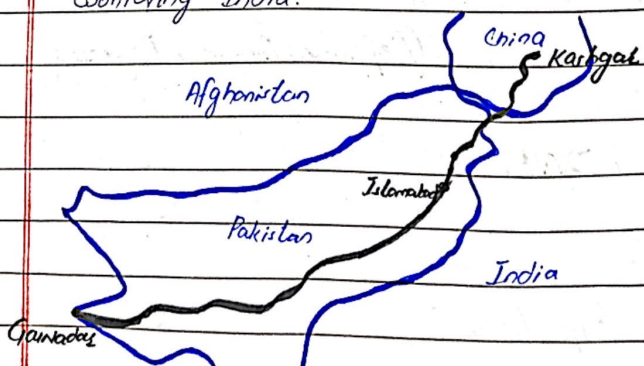 India.
China
Kashgar
Afghanistan
Islamabad
Pakistan
India
Gawadar